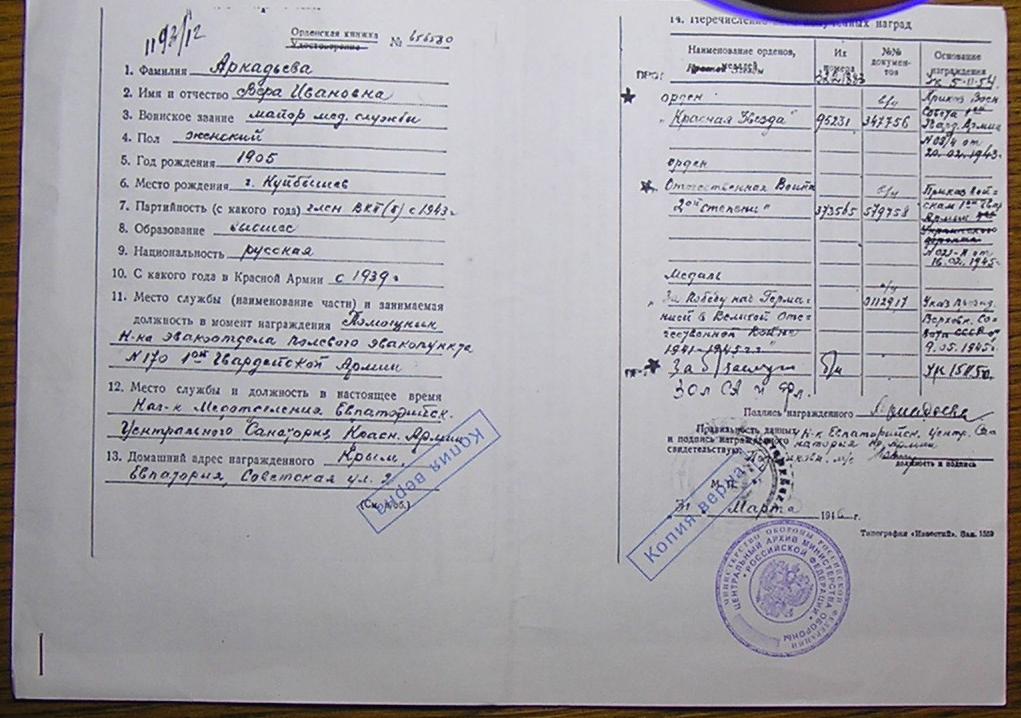 1193/12
Орденская книжка
Удостоверение № 656580
1. Фамилия Аркадьева
2. Имя и отчество Вера Ивановна
3. Воинское звание майор мед. службы
4. Пол женский
5. Год рождения 1905
6. Место рождения г. Куйбышев
7. Партийность (с какого года) член ВКП(б) с 1943 г
8. Образование высшее
9. Национальность русская
10. С какого года в Красной Армии с 1939 г
11. Место службы (наименование части) и занимаемая
должность в момент награждения Помощник
Н-ка эвакоотдела полевого эвакопункта
N 170 1ой Гвардейской Армии
12. Место службы и должность в настоящее время
Нач-к Медотделения Евпаторийск.
Центрального Санатория Красн. Армии
13. Домашний адрес награжденного Крым,
Евпатория, Советская ул. 9
(См. об.)
Копия верна
14. Перечисление наград
Наименование орденов, медалей
Их номера
№№ документов
Основание награждения
Ук 5-11-54
орден б/н Приказ Воен
"Красная Звезда" 95231 347756 Совета 1ой
Гвард. Армии
N 03/н от
20.02.1943г
орден
Отечественная Война б/н Приказ Вой-
2ой степени" 373565 579758 скам 1ой Гвар
Армии
Украинского
фронта
N 021-н от
16.02.1945г
Медаль б/н
"За Победу над Герма- 0112917 Указ Презид.
нией в Великой Оте- Верховн. Со-
чественной Войне вета СССР от
1941-1945 г.г." 9.05.1945г.
За б/заслуги б/н Ук 15.11.50
Подпись награжденного
Правильность данных
и подпись награжденного
свидетельствую: Н-к Евпаторийск. Центр. Са
натория Кр. Армии
должность и подпись
М. П.
31 Марта 1946 г.
Типография «Известий». Зак. 1559
Копия верна
МИНИСТЕРСТВО ОБОРОНЫ РОССИЙСКОЙ ФЕДЕРАЦИИ
ЦЕНТРАЛЬНЫЙ АРХИВ МИНИСТЕРСТВА ОБОРОНЫ
РОССИЙСКОЙ ФЕДЕРАЦИИ